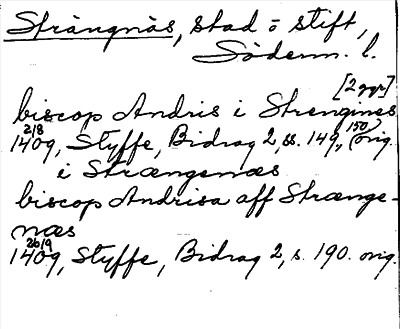 Strängnäs, stad o stift,
Söderm. l.
[2 ggr]
biscop Andris i Strengines
1409 2/8, Styffe, Bidrag 2, ss. 149, 150, orig.
i Strængenæs
biscop Andrisa aff Strænge-
næs
1409 26/9, Styffe, Bidrag 2, s. 190. orig.